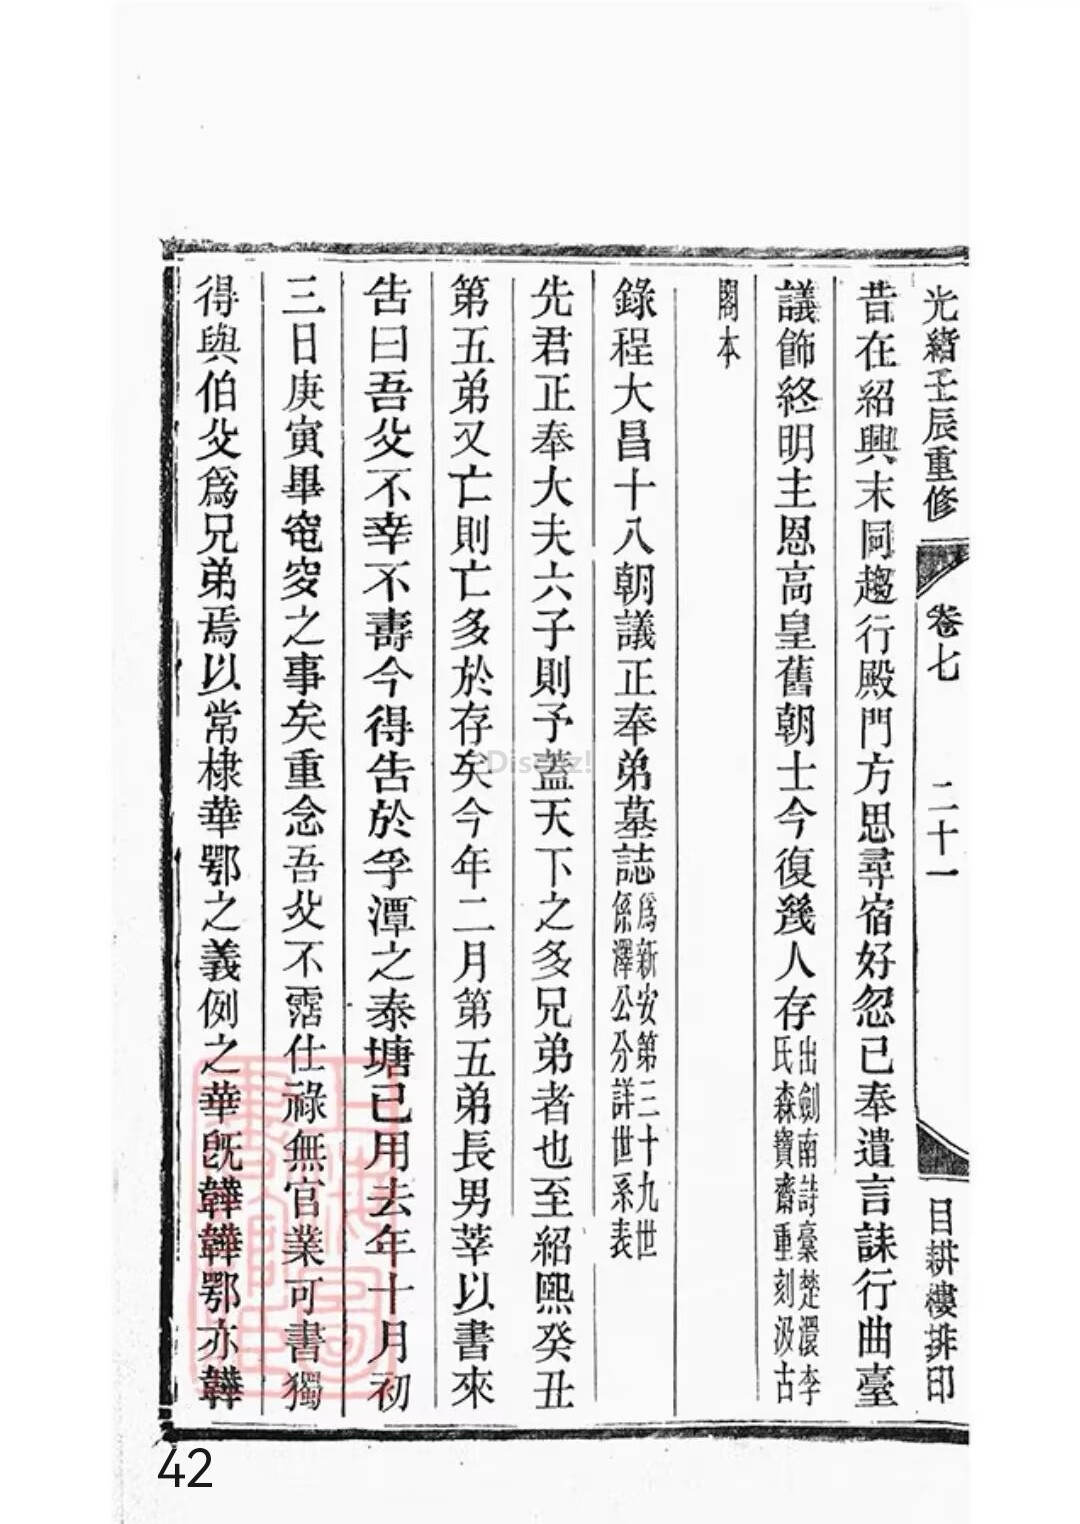 光緒壬辰重修 卷七 二十一 目耕樓排印
昔在紹興末同趨行殿門方思尋宿好忽已奉遺言誄行曲臺
議飾終明主恩高皇舊朝士今復幾人存出劍南詩稾楚澴李氏森寶齋重刻汲古
閣本
錄程大昌十八朝議正奉弟墓誌爲新安第三十九世係澤公分詳世系表
先君正奉大夫六子則予蓋天下之多兄弟者也至紹熙癸丑
第五弟又亡則亡多於存矣今年二月第五弟長男莘以書來
告曰吾父不幸不壽今得告於孚潭之泰塘已用去年十月初
三日庚寅畢窀穸之事矣重念吾父不霑仕祿無官業可書獨
得與伯父爲兄弟焉以常棣華鄂之義例之華旣韡韡鄂亦韡
Discuz!
42